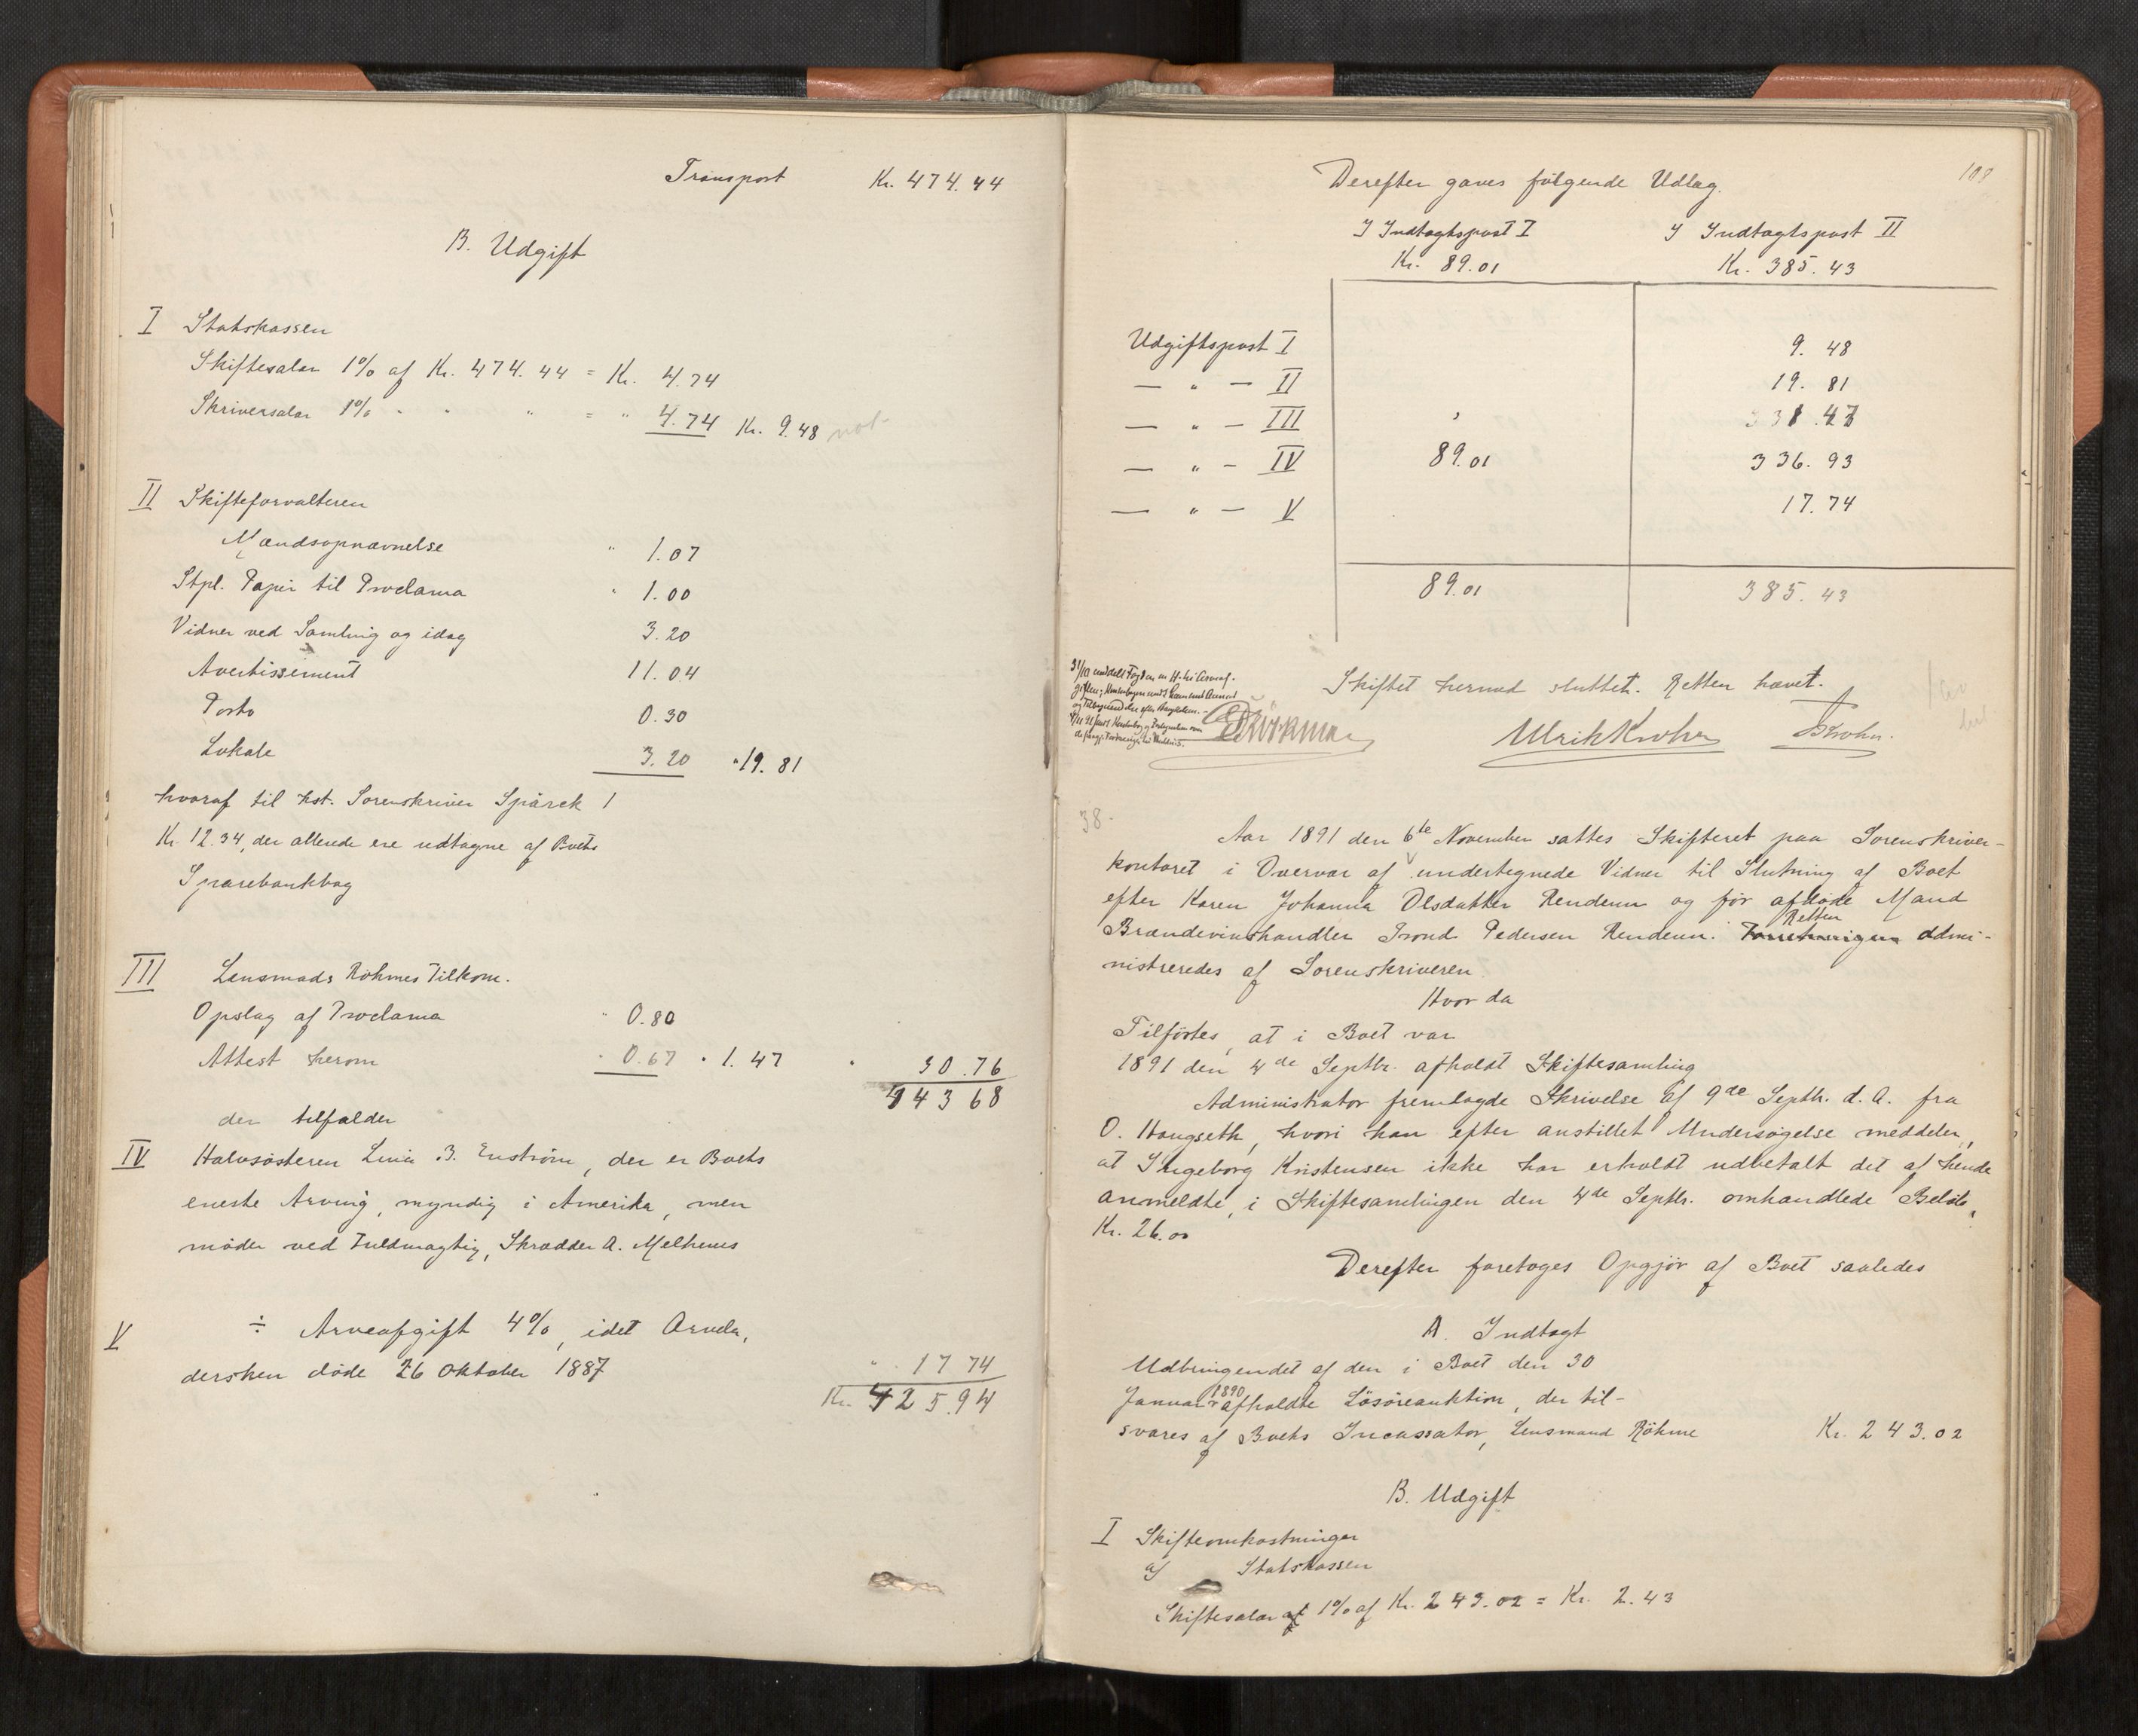 Transport Kr. 474.44
B. Udgift
I Statskassen
Skiftesalar 1% af Kr. 474.44 = Kr. 4.74
Skriversalar 1% " " " = " 4.74 Kr. 9.48
II Skifteforvalteren
Mændsopnævnelse " 1.07
Stpl. Papir til Proclama " 1.00
Vidner ved Samling og idag 3.20
Avertissement 11.04
Porto 0.30
Lokale 3.20 " 19.81
hvoraf til kst. Sorenskriver Spärck
Kr. 12.34, der allerede ere udtagne af Boets
Sparebankbog
III Lensmads Röhmes Tilkom.
Opslag af Proclama " 0.80
Attest herom " 0.67 " 1.47 " 30.76
443 68
der tilfalder
IV Halvsösteren Lina B. Enström, der er Boets
eneste Arving, myndig i Amerika, men
möder ved Fuldmægtig, Skrædder A. Melhuus
V ÷ Arveafgift 4%, idet Arvela,
dersken döde 26 Oktober 1887 " 17 74
Kr. 425.94
108
Derefter gaves fölgende Udlæg.
I Indtægtspost I I Indtægtspost II
Kr. 89.01 Kr. 385.43
Udgiftspost I 9. 48
— " — II 19. 81
— " — III 1.47
— " — IV 89.01 336.93
— " — V 17.74
89.01 385.43
Skiftet hermed sluttet. Retten hævet.
Röhme Ulrik Krohn Krohn.
38.
Aar 1891 den 6te November sattes Skifteret paa Sorenskriver-
kontoret i Overvær af undertegnede Vidner til Slutning af Boet
efter Karen Johanna Olsdatter Rendenn og för afdöde Mand
Brændevinshandler Trond Pedersen Rendenn. Retten admi-
nistreredes af Sorenskriveren.
Hvor da
Tilförtes, at i Boet var
1891 den 4de Septbr. afholdt Skiftesamling
Administrator fremlagde Skrivelse af 9de Septbr. d. A. fra
O. Haugseth, hvori han efter anstillet Undersögelse meddeler,
at Ingeborg Kristensen ikke har erholdt udbetalt det af hende
anmeldte, i Skiftesamlingen den 4de Septbr. omhandlede Belöb,
Kr. 26.00
Derefter foretoges Opgjör af Boet saaledes
A. Indtægt
Udbringendet af den i Boet den 30
Januar 1890 afholdte Lösöreauktion, der til-
svares af Boets Incassator, Lensmand Röhme Kr. 243.02
B. Udgift
I Skifteomkostninger
a) Statskassen
Skiftesalar 1% af Kr. 243.02 = Kr. 2.43